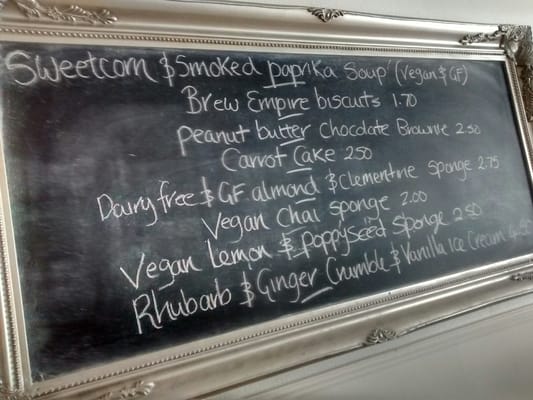 Sweetcorn & Smoked paprika Soup (Vegan & GF)
Brew Empire biscuits 1.70
Peanut butter Chocolate Brownie 2.50
Carrot Cake 2.50
Dairy free & GF almond & Clementine Sponge 2.75
Vegan Chai Sponge 2.00
Vegan Lemon & Poppyseed Sponge 2.50
Rhubarb & Ginger Crumble & Vanilla Ice Cream